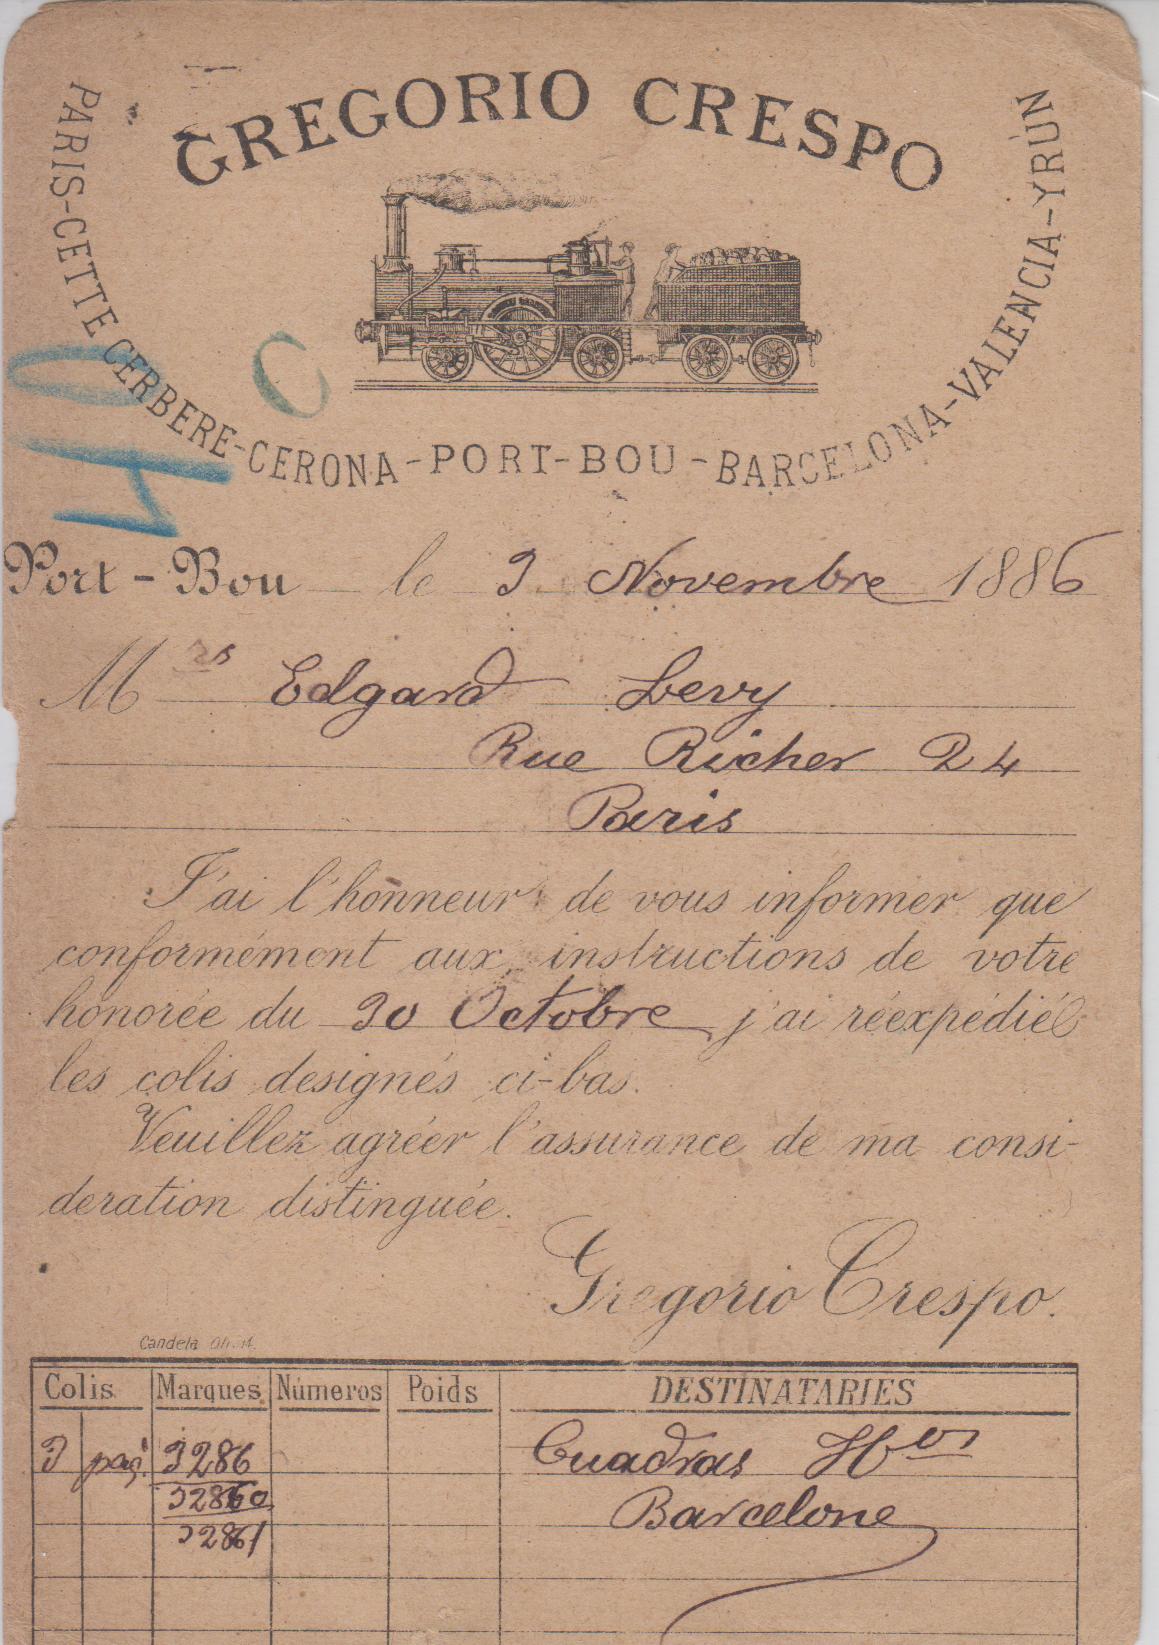 GREGORIO CRESPO
PARIS-CETTE CERBERE-CERONA-PORT-BOU-BARCELONA-VALENCIA-YRÚN
Port-Bou le 3 Novembre 1886
M rs Edgard Levy
Rue Richer 24
Paris
J'ai l'honneur de vous informer que
conformément aux instructions de votre
honorée du 30 Octobre j'ai réexpédié
les colis designés ci-bas.
Veuillez agréer l'assurance de ma consi-
deration distinguée.
Gregorio Crespo.
Candela
Colis Marques Números Poids DESTINATARIES
3 paq. 3286 Cuadras Hos
32860 Barcelone
32861